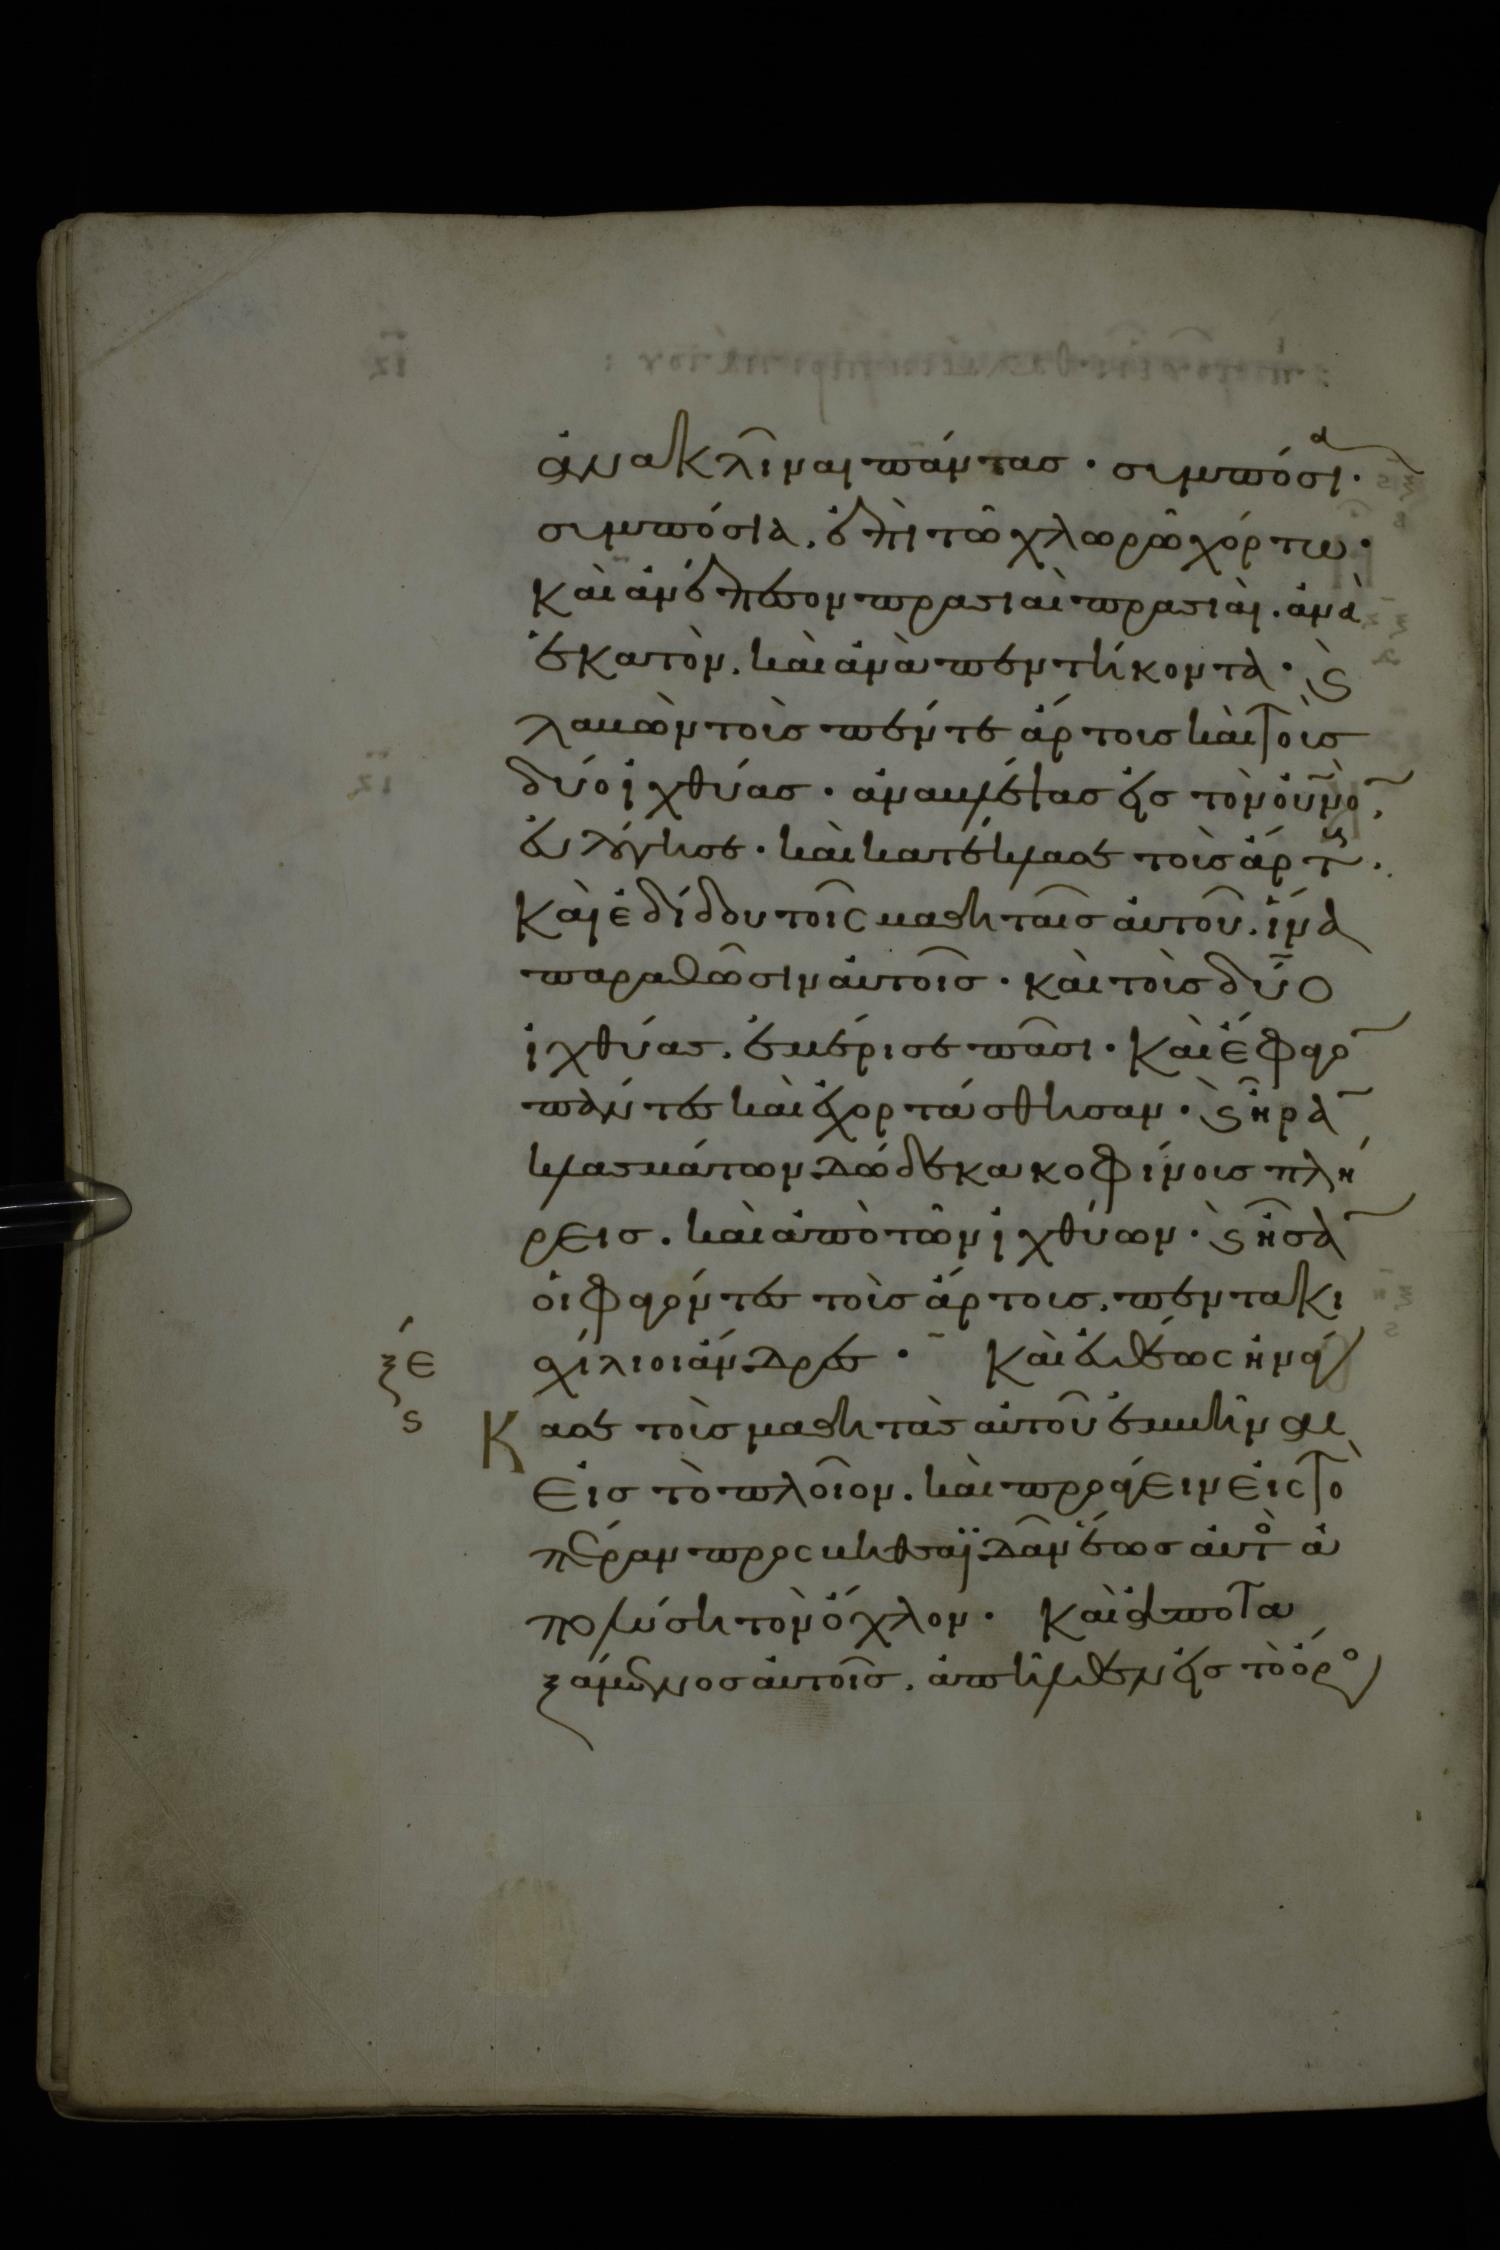 ἀνακλῖναι πάντας · συμπόσια ·
συμπόσια, ἐπὶ τῶ χλωρῶ χόρτω ·
καὶ ἀνέπεσον πρασιαὶ πρασιαὶ · ἀνὰ
ἑκατὸν, καὶ ἀνὰ πεντήκοντα · ϗ
λαβὼν τοὺς πέντε ἄρτους καὶ τοὺς
δύο ἰχθύας · ἀναβλέψας εἰς τὸν οὐνὸν,
εὐλόγησε · καὶ κατέκλασε τοὺς ἄρτους ·
καὶ ἐδίδου τοῖς μαθηταῖς αὐτοῦ · ἵνα
παραθῶσιν αὐτοῖς · καὶ τοὺς δύο
ἰχθύας, ἐμέρισε πᾶσι · καὶ ἔφαγον
πάντες καὶ ἐχορτάσθησαν · ϗ ἦραν
κλασμάτων δώδεκα κοφίνους πλή
ρεις · καὶ ἀπὸ τῶν ἰχθύων · ϗ ἦσαν
οἱ φαγόντες τοὺς ἄρτους, πεντακι
ξε χίλιοι ἄνδρες · καὶ εὐθέως ἠνάγ
ς Κασε τοὺς μαθητὰς αὐτοῦ ἐμβῆναι
εἰς τὸ πλοῖον · καὶ προάγειν εἰς τὸ
πέραν πρὸς βηθσαϊδὰν ἕως αὐτὸς ἀ
πολύση τὸν ὄχλον · καὶ ἀποτα
ξάμενος αὐτοῖς, ἀπῆλθεν εἰς τὸ ὄρος